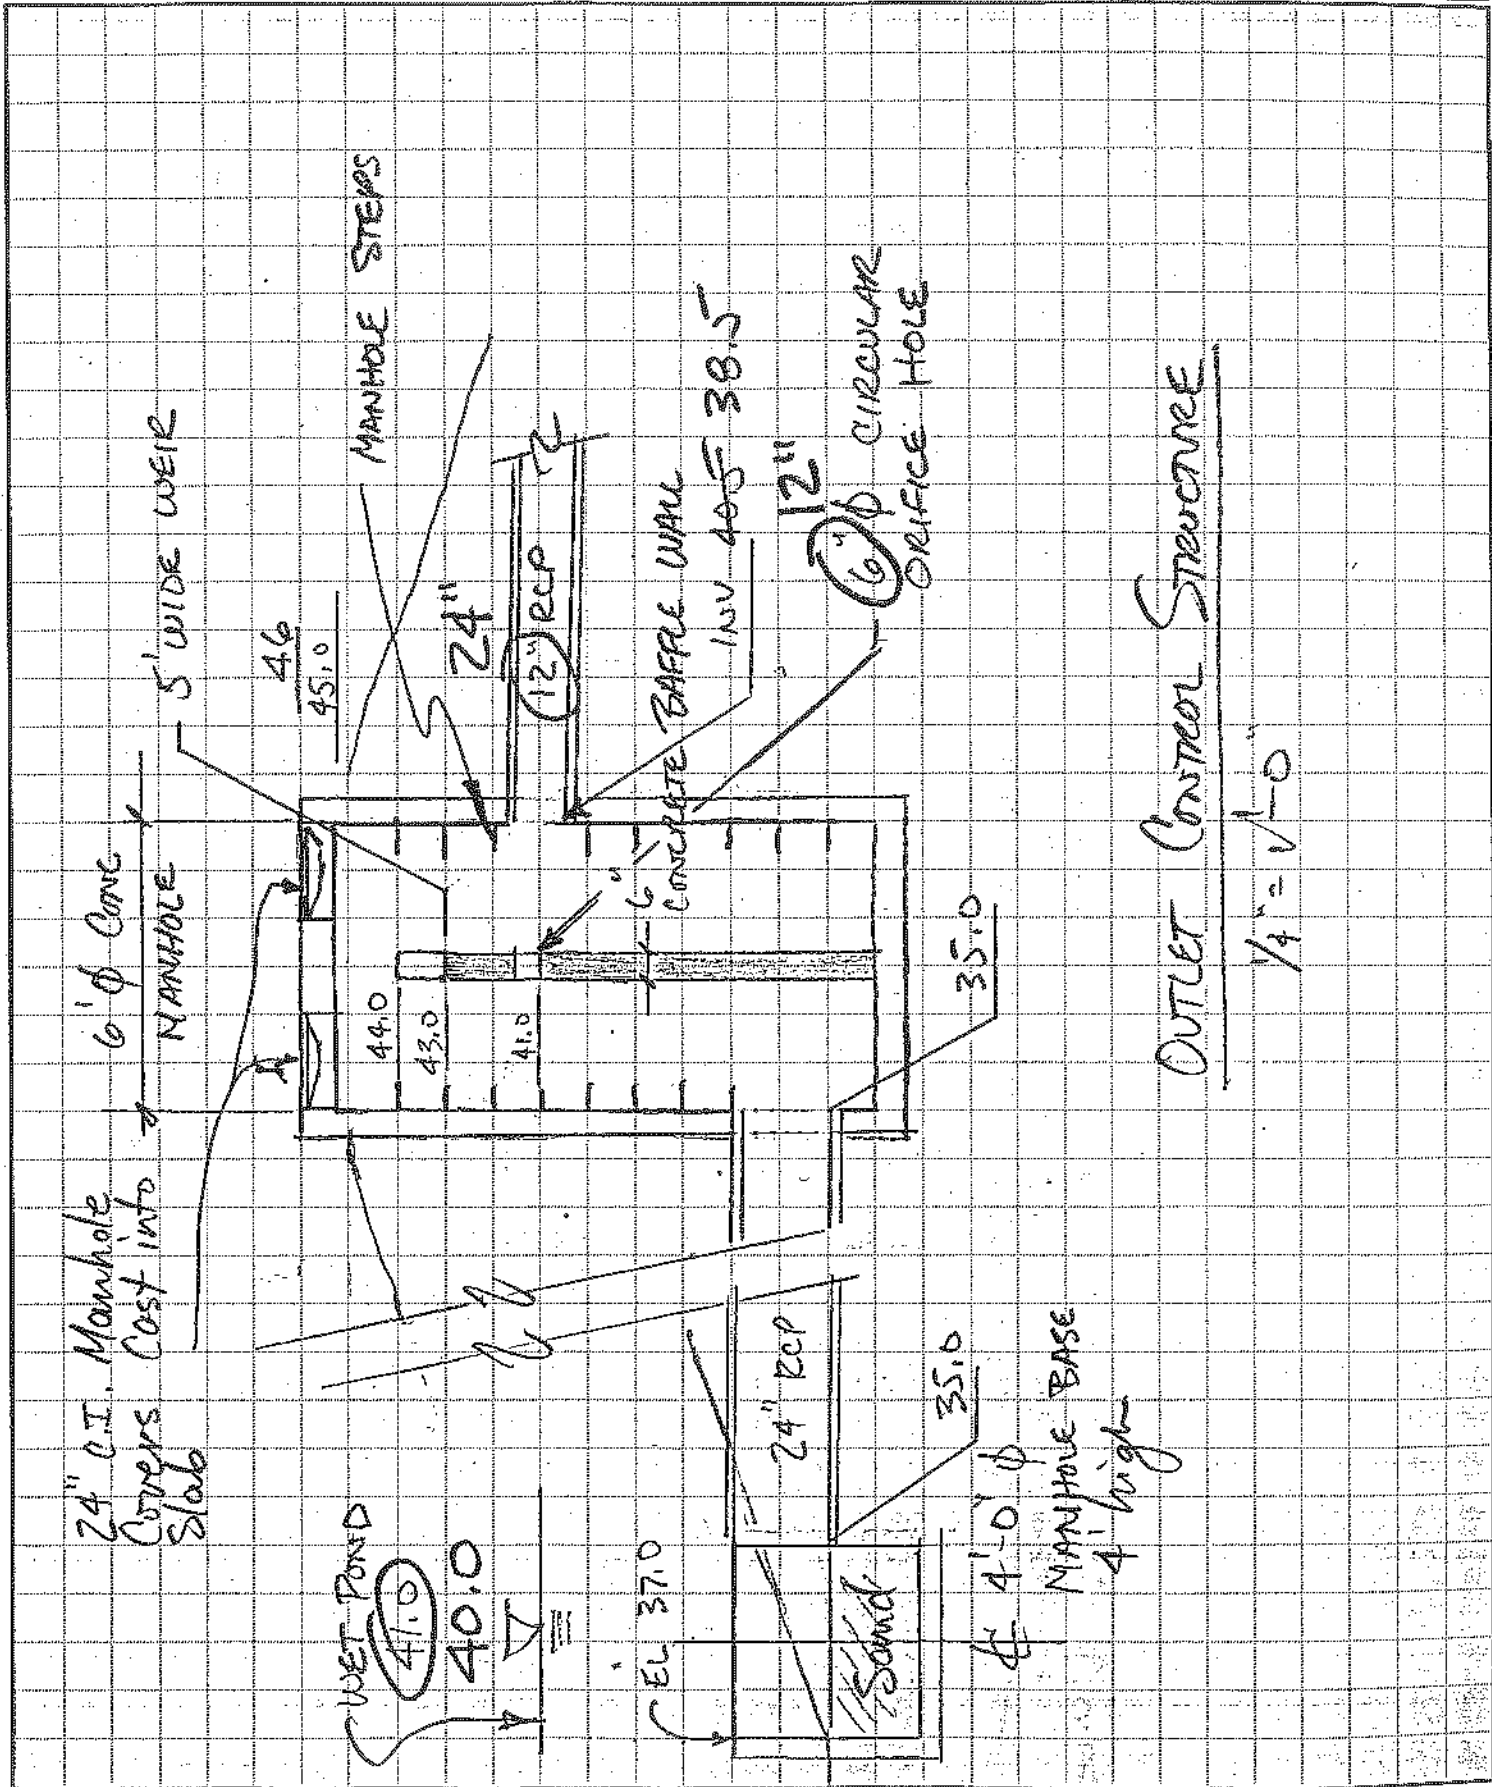 24" C.I. Manhole
Covers Cast into
Slab
6' φ CONC
MANHOLE
5' WIDE WEIR
46
45.0
MANHOLE STEPS
44.0
43.0
41.0
24"
12" RCP
6"
CONCRETE BAFFLE WALL
INV 40.5 38.5
12"
6" φ CIRCULAR
ORIFICE HOLE
WET POND
41.0
40.0
EL 37.0
24" RCP
35.0
35.0
Sand
℄ 4'-0" φ
MANHOLE BASE
4' high
OUTLET CONTROL STRUCTURE
1/4" = 1'-0"